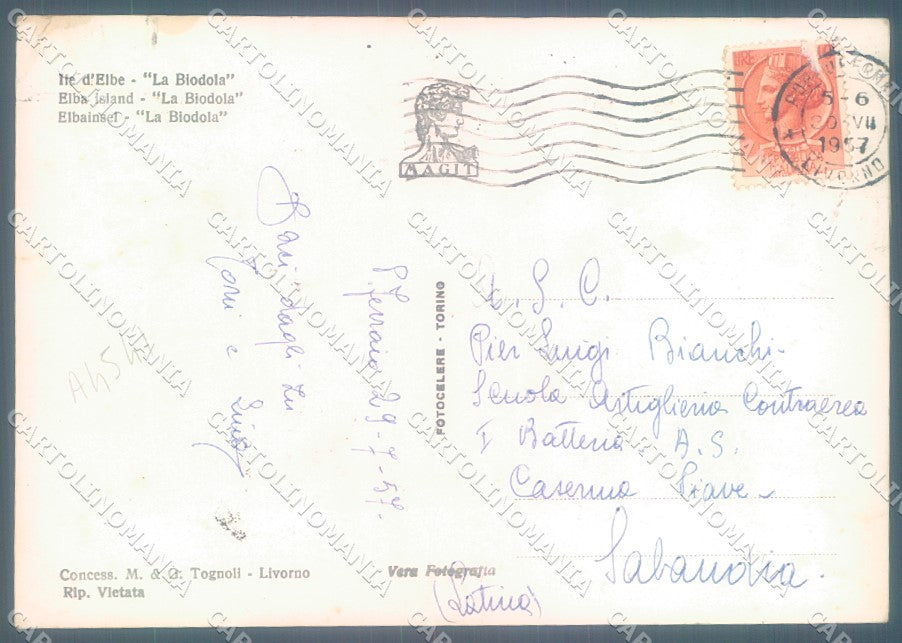 Ile d'Elbe - "La Biodola"
Elba island - "La Biodola"
Elbainsel - "La Biodola"
MAGIT
LIRE
5-6
VII
1957
LIVORNO
Baci dagli zii
Toni e
Luigi
P. Ferraio 29-7-57.
FOTOCELERE - TORINO
A. S. C.
Pier Luigi Bianchi-
Scuola Artiglieria Contraerea
I Batteria A.S.
Caserma Piave-
Sabaudia.
(Latina)
Concess. M. & G. Tognoli - Livorno
Rip. Vietata
Vera Fotografia
CARTOLINOMANIA